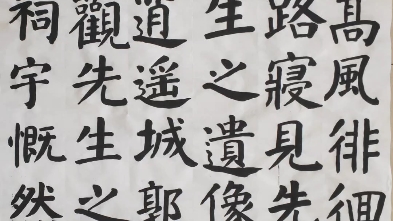 高風徘徊
路寢見先
生之遺像
逍遥城郭
觀先生之
祠宇慨然